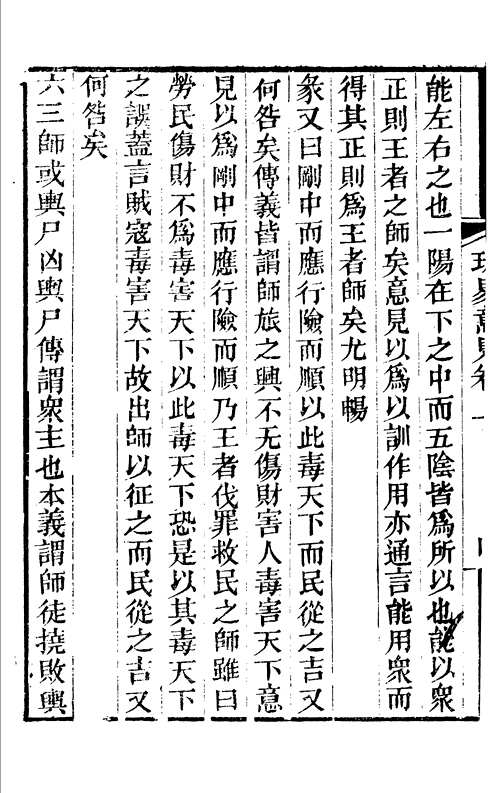 玩易意見卷一
能左右之也一陽在下之中而五陰皆爲所以也能以衆
正則王者之師矣意見以爲以訓作用亦通言能用衆而
得其正則爲王者師矣尤明暢
彖又曰剛中而應行險而順以此毒天下而民從之吉又
何咎矣傳義皆謂師旅之興不无傷財害人毒害天下意
見以爲剛中而應行險而順乃王者伐罪救民之師雖曰
勞民傷財不爲毒害天下以此毒天下恐是以其毒天下
之誤蓋言賊寇毒害天下故出師以征之而民從之吉又
何咎矣
六三師或輿尸凶輿尸傳謂衆主也本義謂師徒撓敗輿